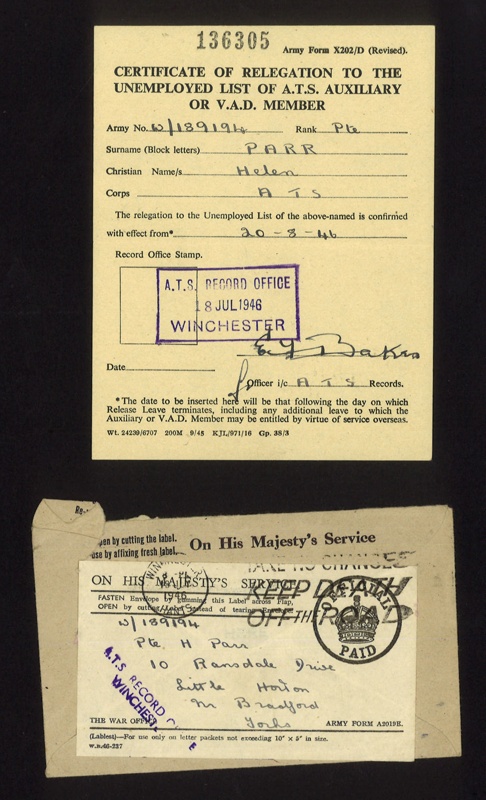 136305
Army Form X202/D (Revised).
CERTIFICATE OF RELEGATION TO THE
UNEMPLOYED LIST OF A.T.S. AUXILIARY
OR V.A.D. MEMBER
Army No. W/139194 Rank Pte
Surname (Block letters) PARR
Christian Name/s Helen
Corps A T S
The relegation to the Unemployed List of the above-named is confirmed
with effect from* 20-8-46
Record Office Stamp.
A.T.S. RECORD OFFICE
18 JUL 1946
WINCHESTER
Date
Officer i/c A T S Records.
*The date to be inserted here will be that following the day on which
Release Leave terminates, including any additional leave to which the
Auxiliary or V.A.D. Member may be entitled by virtue of service overseas.
Wt. 24239/6707 200M 9/45 KJL/971/16 Gp. 38/3
open by cutting the label.
use by affixing fresh label.
On His Majesty's Service
TAKE NO CHANCES
KEEP DEATH
OFF THE ROAD
ON HIS MAJESTY'S SERVICE
1946
HANTS
OFFICIAL
PAID
FASTEN Envelope by gumming this Label across Flap,
OPEN by cutting Label instead of tearing Envelope.
W/139194
Pte. H Parr
10 Ransdale Drive
Little Horton
Nr Bradford
Yorks
A.T.S. RECORD OFFICE
WINCHESTER
THE WAR OFFICE
ARMY FORM A2019E.
(Lablest)—For use only on letter packets not exceeding 10" × 5" in size.
w.n.46-237